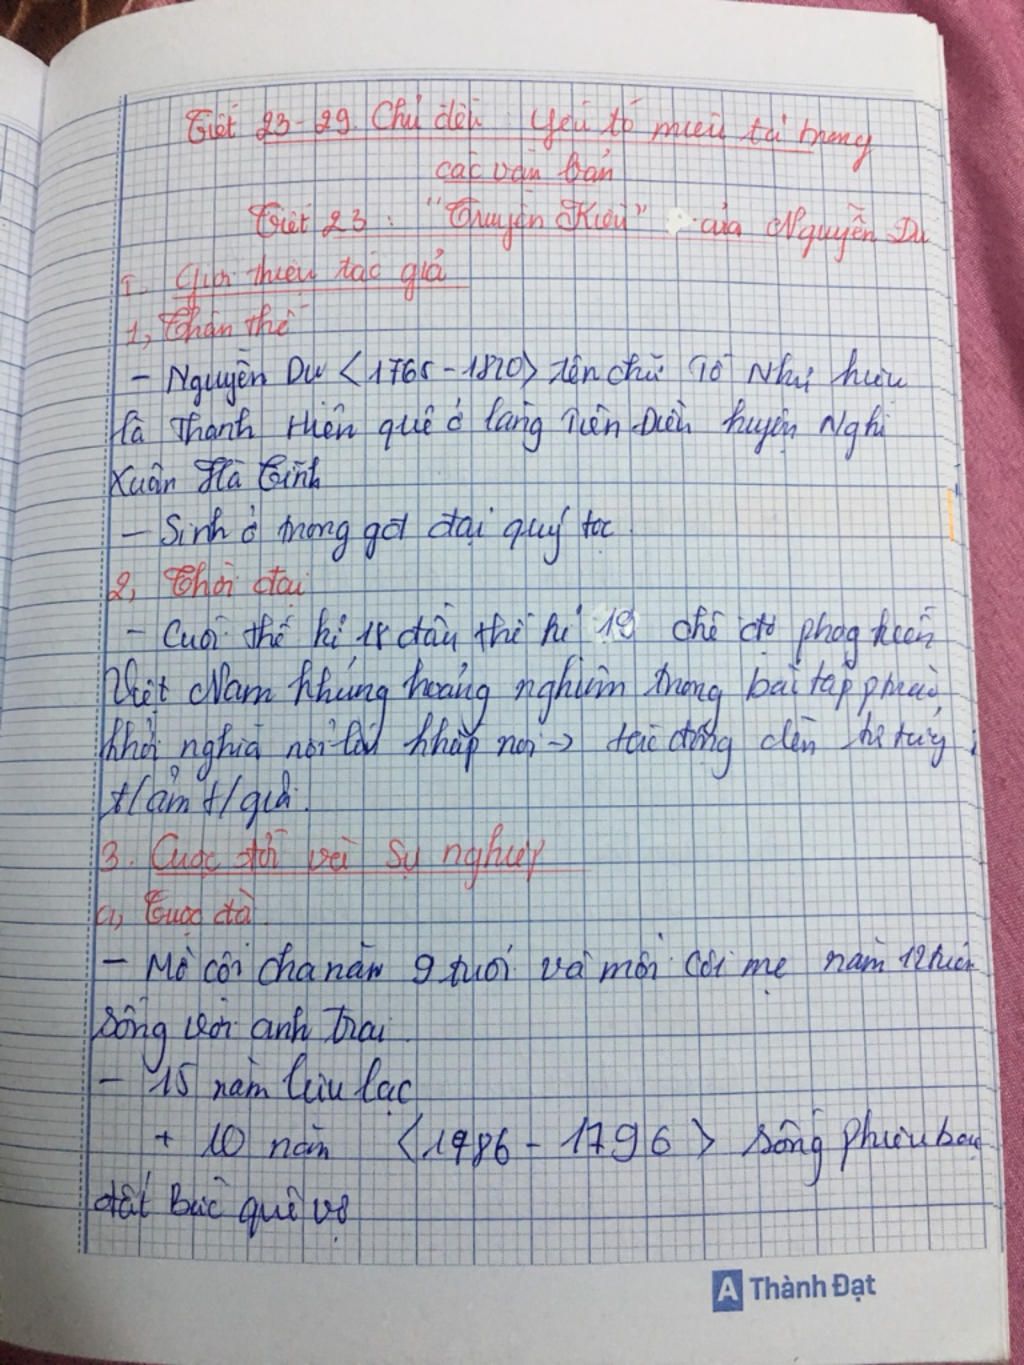 Tiết 23-29. Chủ đề: Yếu tố miêu tả trong
các văn bản
Tiết 23: "Truyện Kiều" của Nguyễn Du
I. Giới thiệu tác giả
1, Thân thế
- Nguyễn Du <1765-1820> tên chữ Tố Như hiệu
là Thanh Hiên quê ở làng Tiên Điền huyện Nghi
Xuân Hà Tĩnh
- Sinh ở trong gđ đại quý tộc
2, Thời đại
- Cuối thế kỉ 18 đầu thế kỉ 19 chế độ phog kiến
Việt Nam khủng hoảng nghiêm trọng bão táp phong
khởi nghĩa nổi lên khắp nơi → tác động đến
t/cảm t/giả.
3. Cuộc đời và sự nghiệp
a, Cuộc đời
- Mồ côi cha năm 9 tuổi và mồi côi mẹ năm 12 tuổi
sống với anh trai
- 15 năm lưu lạc
+ 10 năm <1786-1796> sống phiêu bạt
đất Bắc quê vợ
A Thành Đạt